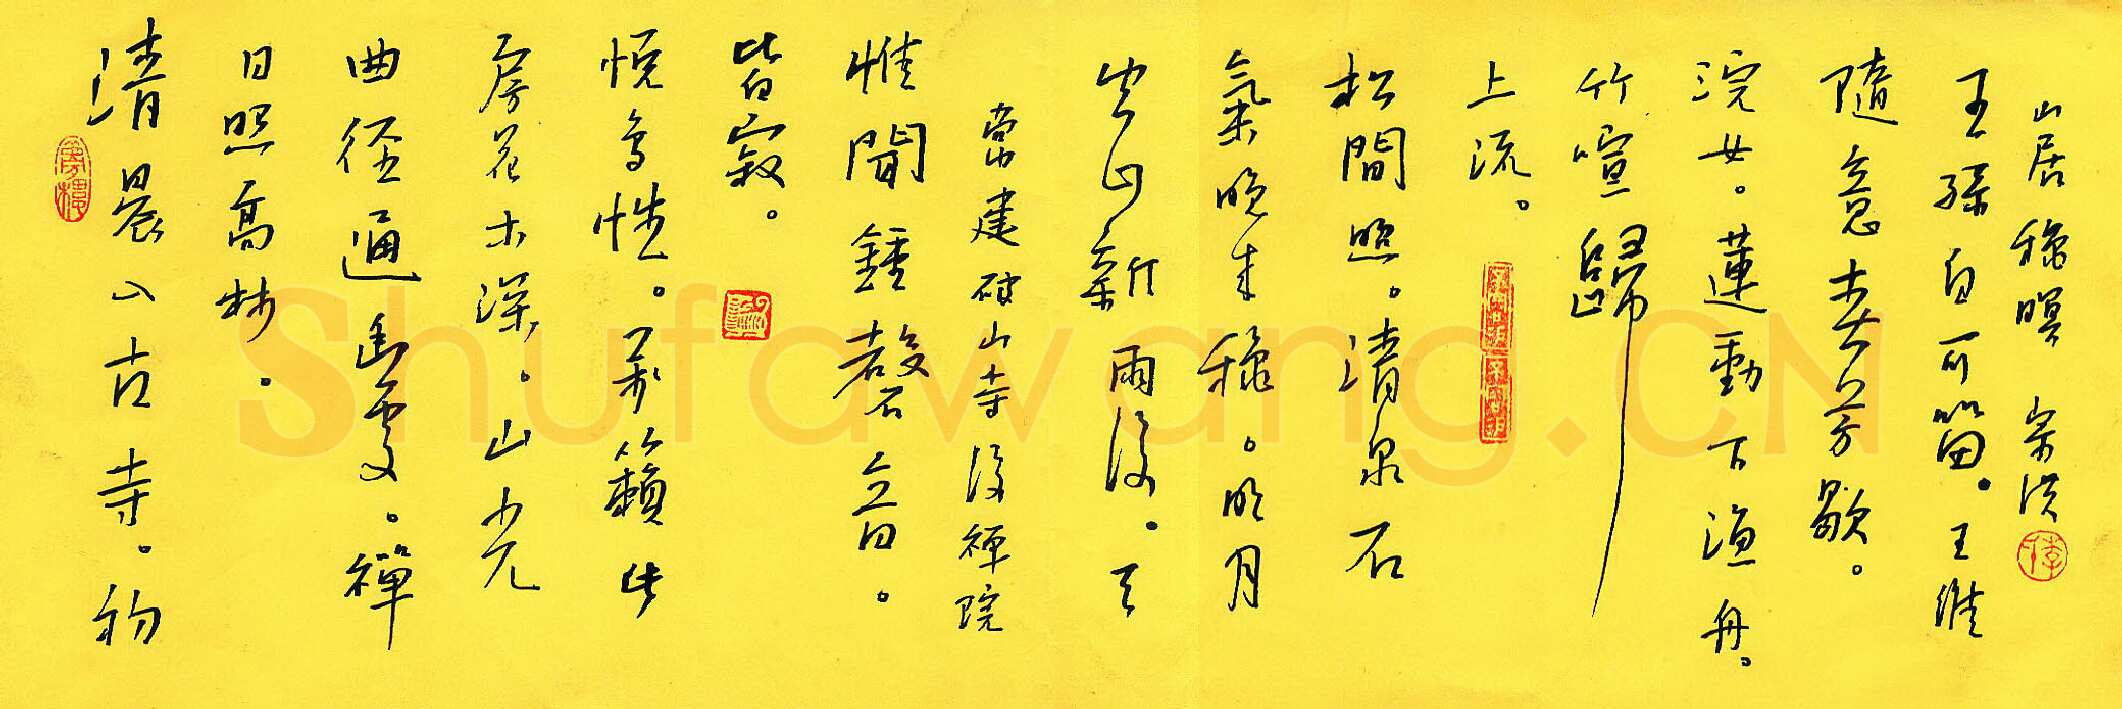 清晨入古寺。初
日照高林。
曲径通幽處。禪
房花木深。山光
悦鳥性。萬籟此
皆寂。
惟聞鍾磬音。
常建破山寺後禪院
空山新雨後。天
氣晚来穐。明月
松間照。清泉石
上流。
竹喧歸
浣女。蓮動下漁舟。
隨意春芳歇。
王孫自可留。王維
山居穐暝
Shufawang.CN